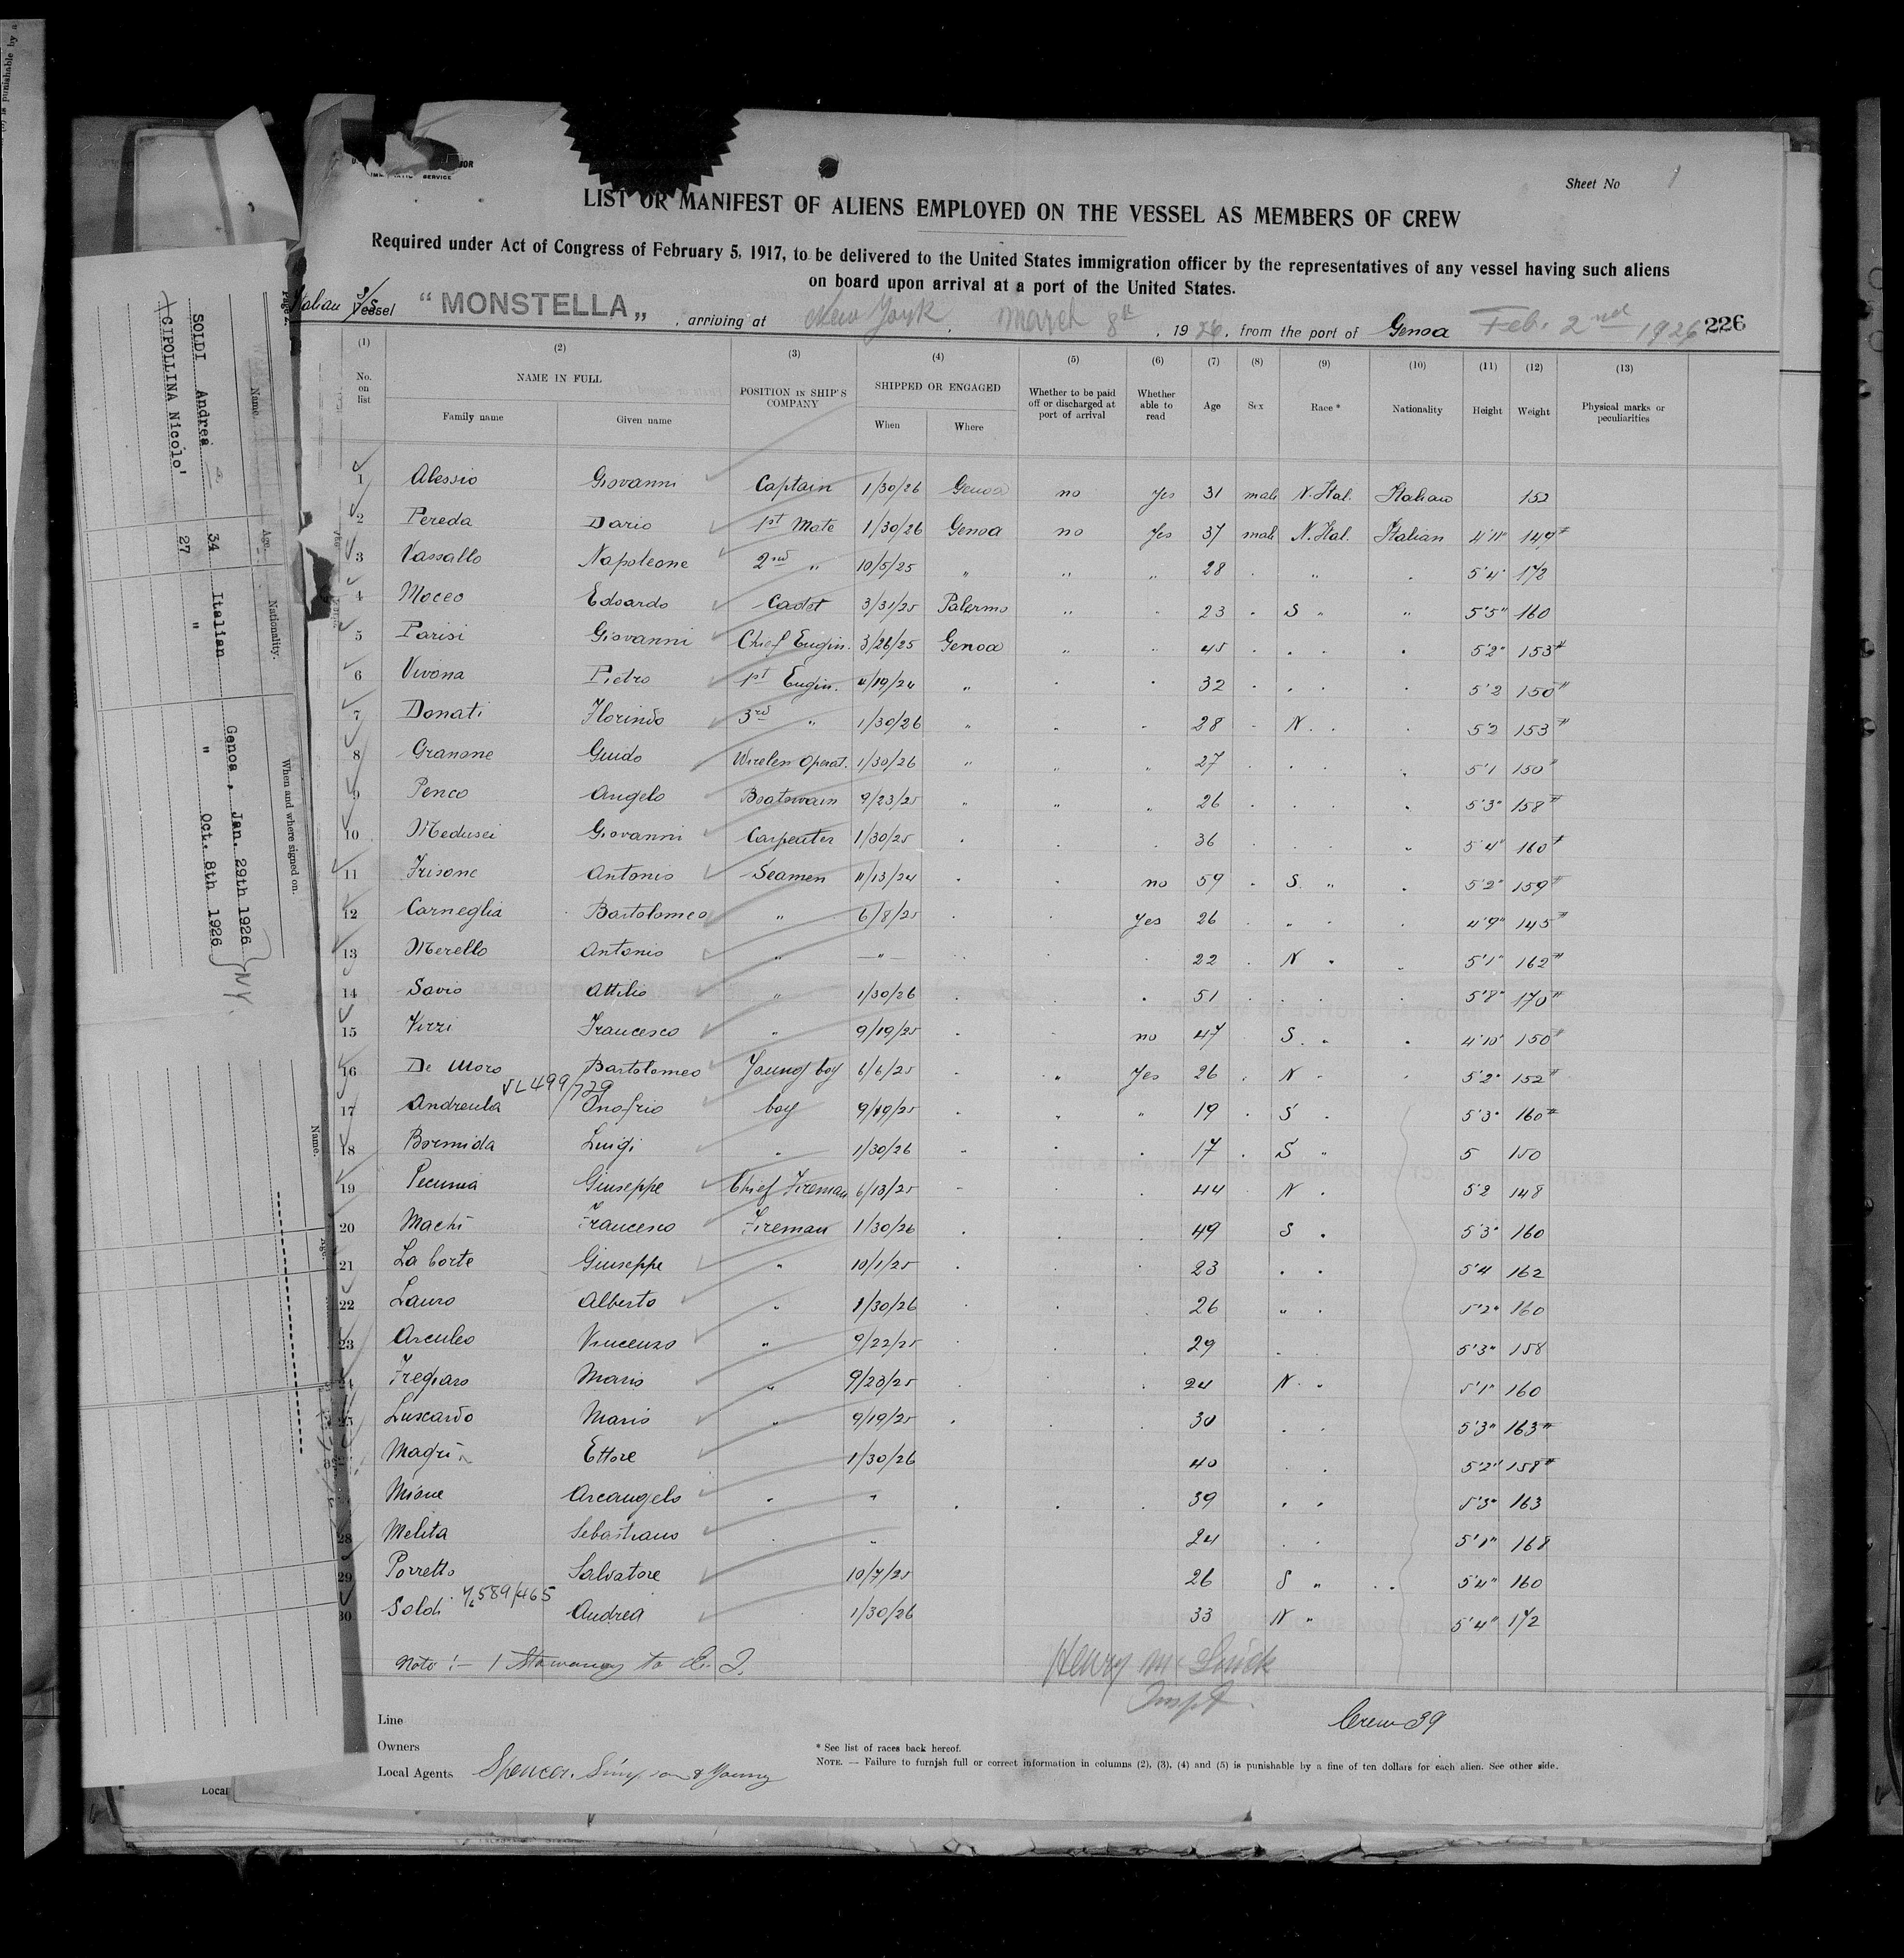 Sheet No 1
LIST OR MANIFEST OF ALIENS EMPLOYED ON THE VESSEL AS MEMBERS OF CREW
Required under Act of Congress of February 5, 1917, to be delivered to the United States immigration officer by the representatives of any vessel having such aliens
on board upon arrival at a port of the United States.
Italian S/S Vessel "MONSTELLA", arriving at New York, March 8th, 1926, from the port of Genoa Feb. 2nd 1926 226
(1) (2) (3) (4) (5) (6) (7) (8) (9) (10) (11) (12) (13)
No. on list NAME IN FULL Family name Given name POSITION IN SHIP'S COMPANY SHIPPED OR ENGAGED When Where Whether to be paid off or discharged at port of arrival Whether able to read Age Sex Race * Nationality Height Weight Physical marks or peculiarities
1 Alessio Giovanni Captain 1/30/26 Genoa no Yes 31 male N. Ital. Italian 152
2 Pereda Dario 1st Mate 1/30/26 Genoa no Yes 37 male N. Ital. Italian 4'11" 149#
3 Vassallo Napoleone 2nd " 10/5/25 " " " 28 " 5'4" 172
4 Moceo Edoardo Cadet 3/31/25 Palermo " " 23 S " " 5'5" 160
5 Parisi Giovanni Chief Engin. 3/26/25 Genoa " " 45 5'2" 153#
6 Vivona Pietro 1st Engin. 4/19/24 " 32 5'2 150#
7 Donati Florindo 3rd " 1/30/26 " 28 N. 5'2 153#
8 Granone Guido Wireless Operat. 1/30/26 " " " 27 5'1 150"
9 Penco Angelo Boatswain 9/23/25 " " " 26 5'3" 158#
10 Medusei Giovanni Carpenter 1/30/25 36 " 5'4" 160#
11 Frisone Antonio Seamen 11/13/24 no 59 S. " 5'2" 159#
12 Carneglia Bartolomeo " 6/8/25 Yes 26 " 4'9" 145#
13 Merello Antonio " " 22 N " 5'1" 162#
14 Savio Attilio " 1/30/26 51 5'8" 170#
15 Virzi Francesco " 9/19/25 no 47 S. " 4'10" 150#
16 De Moro Bartolomeo Young boy 6/6/25 " Yes 26 N 5'2" 152#
VL 499/729
17 Andreula Onofrio boy 9/19/25 " " 19 S 5'3" 160#
18 Bormida Luigi " 1/30/26 17 S " 5 150
19 Pecunia Giuseppe Chief Fireman 6/13/25 44 N 5'2 148
20 Machi Francesco Fireman 1/30/26 49 S 5'3" 160
21 La Corte Giuseppe " 10/1/25 23 5'4 162
22 Lauro Alberto " 1/30/26 26 " 5'2" 160
23 Arculeo Vincenzo " 9/22/25 29 5'3" 158
24 Mario " 9/23/25 24 N. " 5'1" 160
25 Luscardo Mario " 9/19/25 30 5'3" 163#
Magri Ettore 1/30/26 40 5'2" 158#
Mione Arcangelo " " 39 5'3" 163
28 Melita Sebastiano " 24 5'1" 168
29 Porretto Salvatore 10/7/25 26 S " 5'4" 160
30 Soldi 589/465 Andrea 1/30/26 33 N " 5'4" 172
Note :- 1 Stowaway to E. I.
Henry Mc
Inspt.
Crew 39
Line
Owners
Local Agents Spencer, Simpson & Young
* See list of races back hereof.
NOTE. — Failure to furnish full or correct information in columns (2), (3), (4) and (5) is punishable by a fine of ten dollars for each alien. See other side.
Local
Name. Age. Nationality. When and where signed on.
SOLDI Andrea 34 Italian Genoa, Jan. 29th 1926
CIPOLLINA Nicolo' 27 " " Oct. 8th 1926
NY
Name.
SERVICE